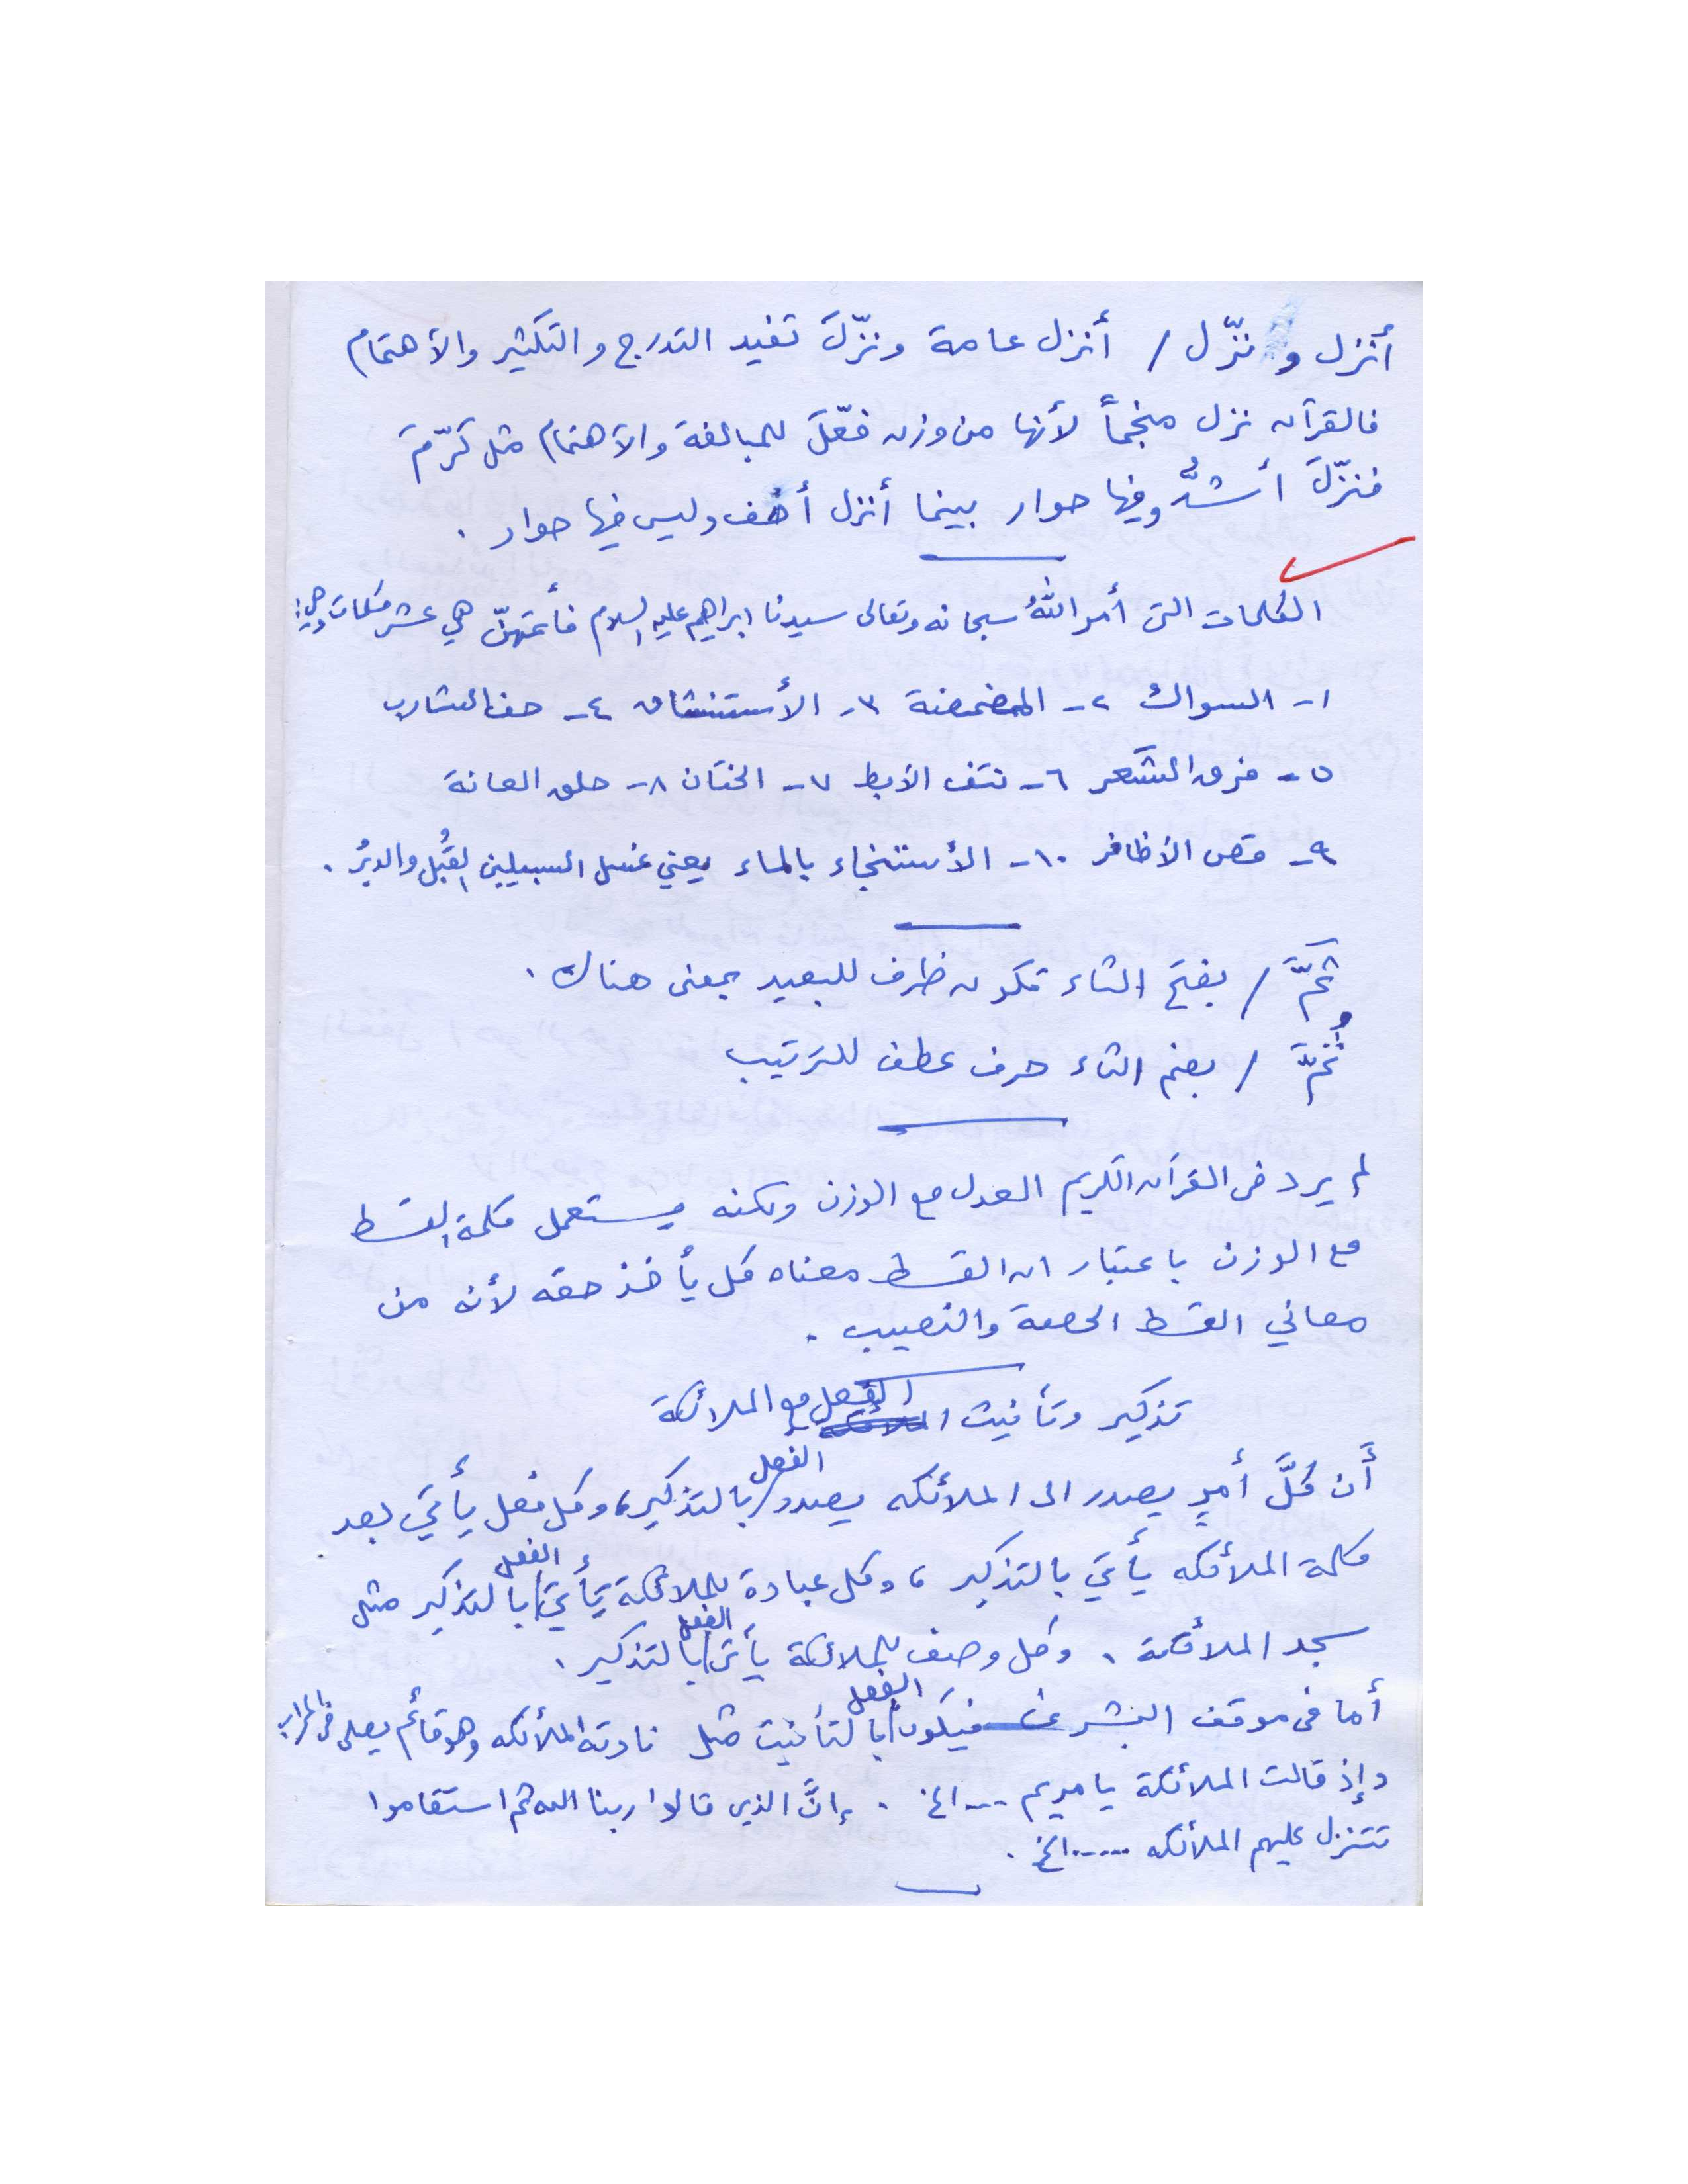 أنزل و نزّل / أنزل عامة ونزّلَ تفيد التدرج والتكثير والأهتمام
فالقرآن نزل منجماً لأنها من وزن فعّلَ للمبالغة والأهتمام مثل كرّمَ
فنزّلَ أشدُّ وفيها حوار بينما أنزل أخف وليس فيها حوار .
الكلمات التى أمر اللهُ سبحانه وتعالى سيدنا ابراهيم عليه السلام فأتمهنّ هي عشر كلمات وهي:
١- السواك ٢- المضمضة ٣- الأستنشاق ٤- حف الشارب
٥- فرق الشَعر ٦- نتف الأبط ٧- الختان ٨- حلق العانة
٩- قص الأظافر ١٠- الأستنجاء بالماء يعني غسل السبيلين القُبُل والدبُر .
ثَمَّ / بفتح الثاء تكون ظرف للبعيد بمعنى هناك .
ثُمَّ / بضم الثاء حرف عطف للترتيب
لم يرد فى القرآن الكريم العدل مع الوزن ولكنه يستعمل كلمة القسط
مع الوزن باعتبار ان القسط معناه كل يأخذ حقه لأنه من
معاني القسط الحصة والنصيب .
تذكير وتأنيث الفعل مع الملائكة
أن كلَّ أمرٍ يصدر الى الملأئكه يصدر الفعل بالتذكير، وكل فعل يأتي بعد
كلمة الملأئكه يأتي بالتذكير ، وكل عبادة للملائكة يأتي الفعل بالتذكير مثل
سجد الملأئكة . وكل وصف للملائكة يأتى الفعل بالتذكير .
أما فى موقف البشر فيكون الفعل بالتأنيث مثل نادته الملأئكه وهو قأئم يصلى فى المحراب
وإذ قالت الملأئكة يا مريم ---الخ . إنَّ الذين قالوا ربنا الله ثم استقاموا
تتنزل عليهم الملأئكه .....الخ .